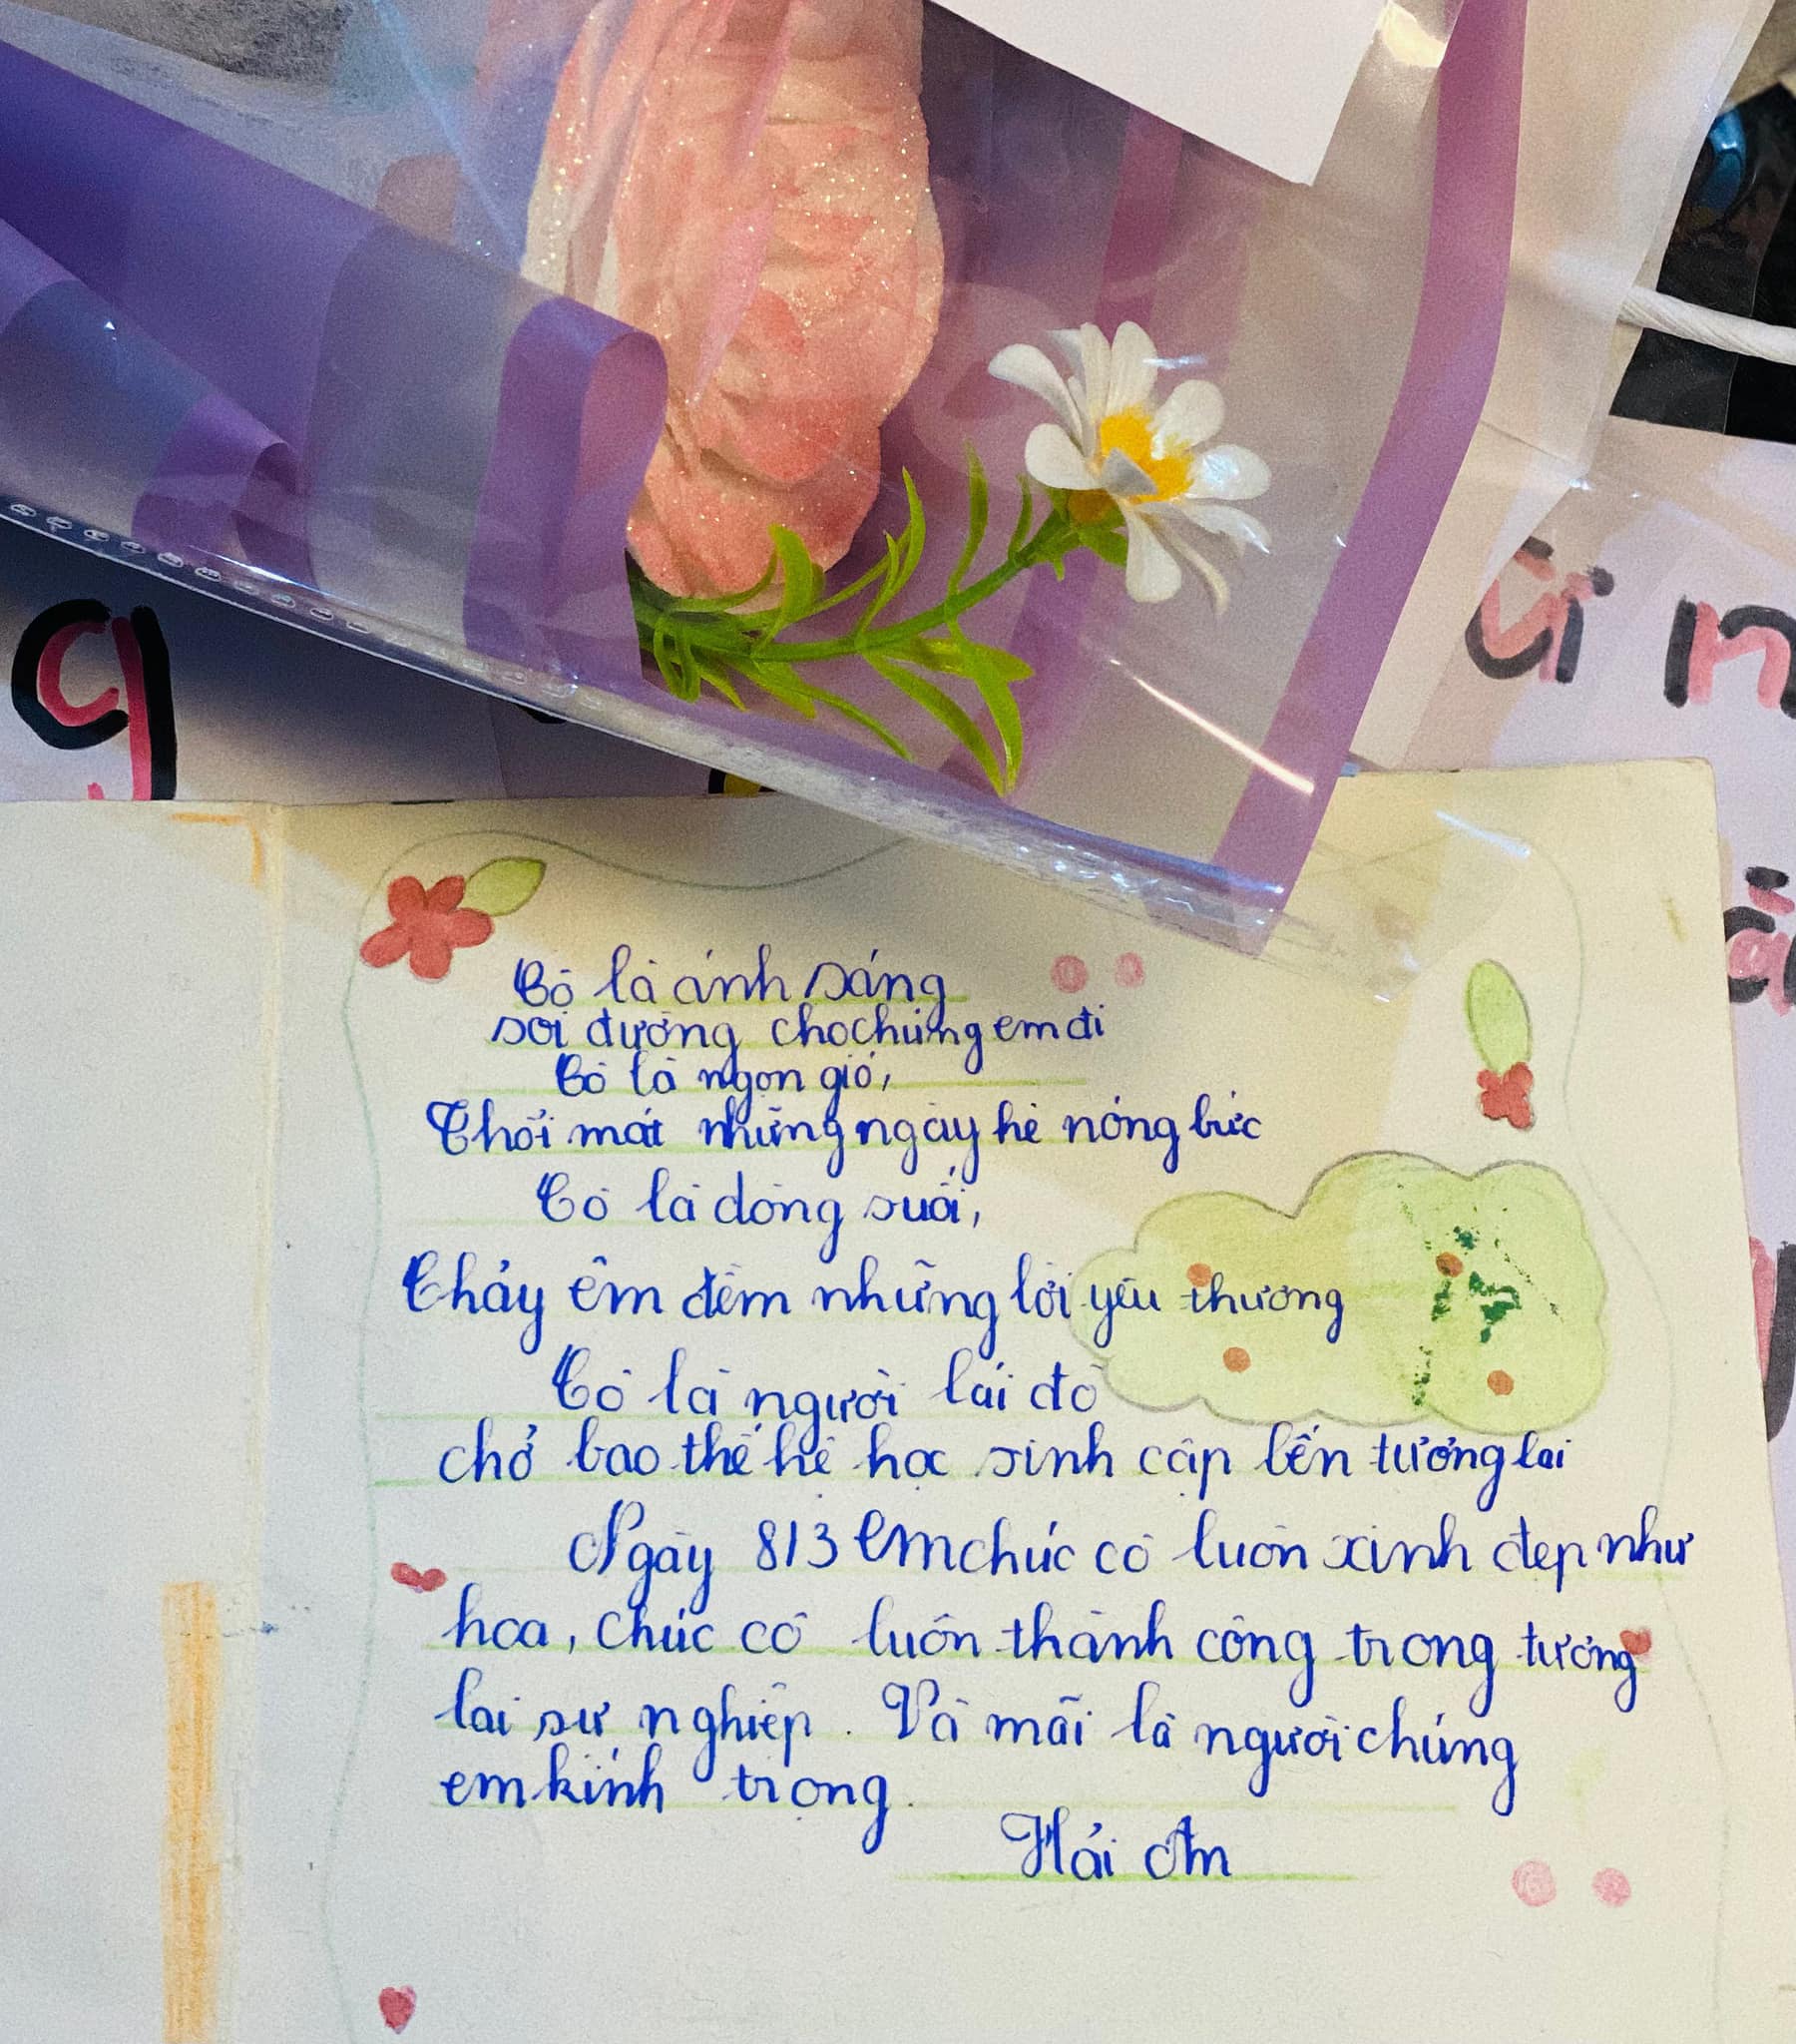 g
ữ n
ả
Cô là ánh sáng
soi đường cho chúng em đi
Cô là ngọn gió,
Thổi mát những ngày hè nóng bức
Cô là dòng suối,
Chảy êm đềm những lời yêu thương
Cô là người lái đò
chở bao thế hệ học sinh cập bến tương lai
Ngày 8/3 Em chúc cô luôn xinh đẹp như
hoa, chúc cô luôn thành công trong tương
lai sự nghiệp. Và mãi là người chúng
em kính trọng.
Hải An